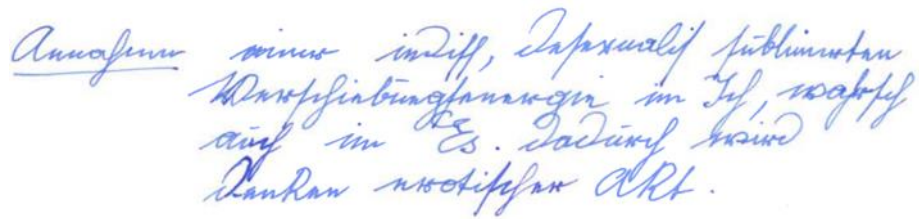 Annahme einer indiff, desexualis sublimierten
Verschiebungsenergie im Ich, wahrsch
auch im Es. Dadurch wird
Denken erotischer Akt.